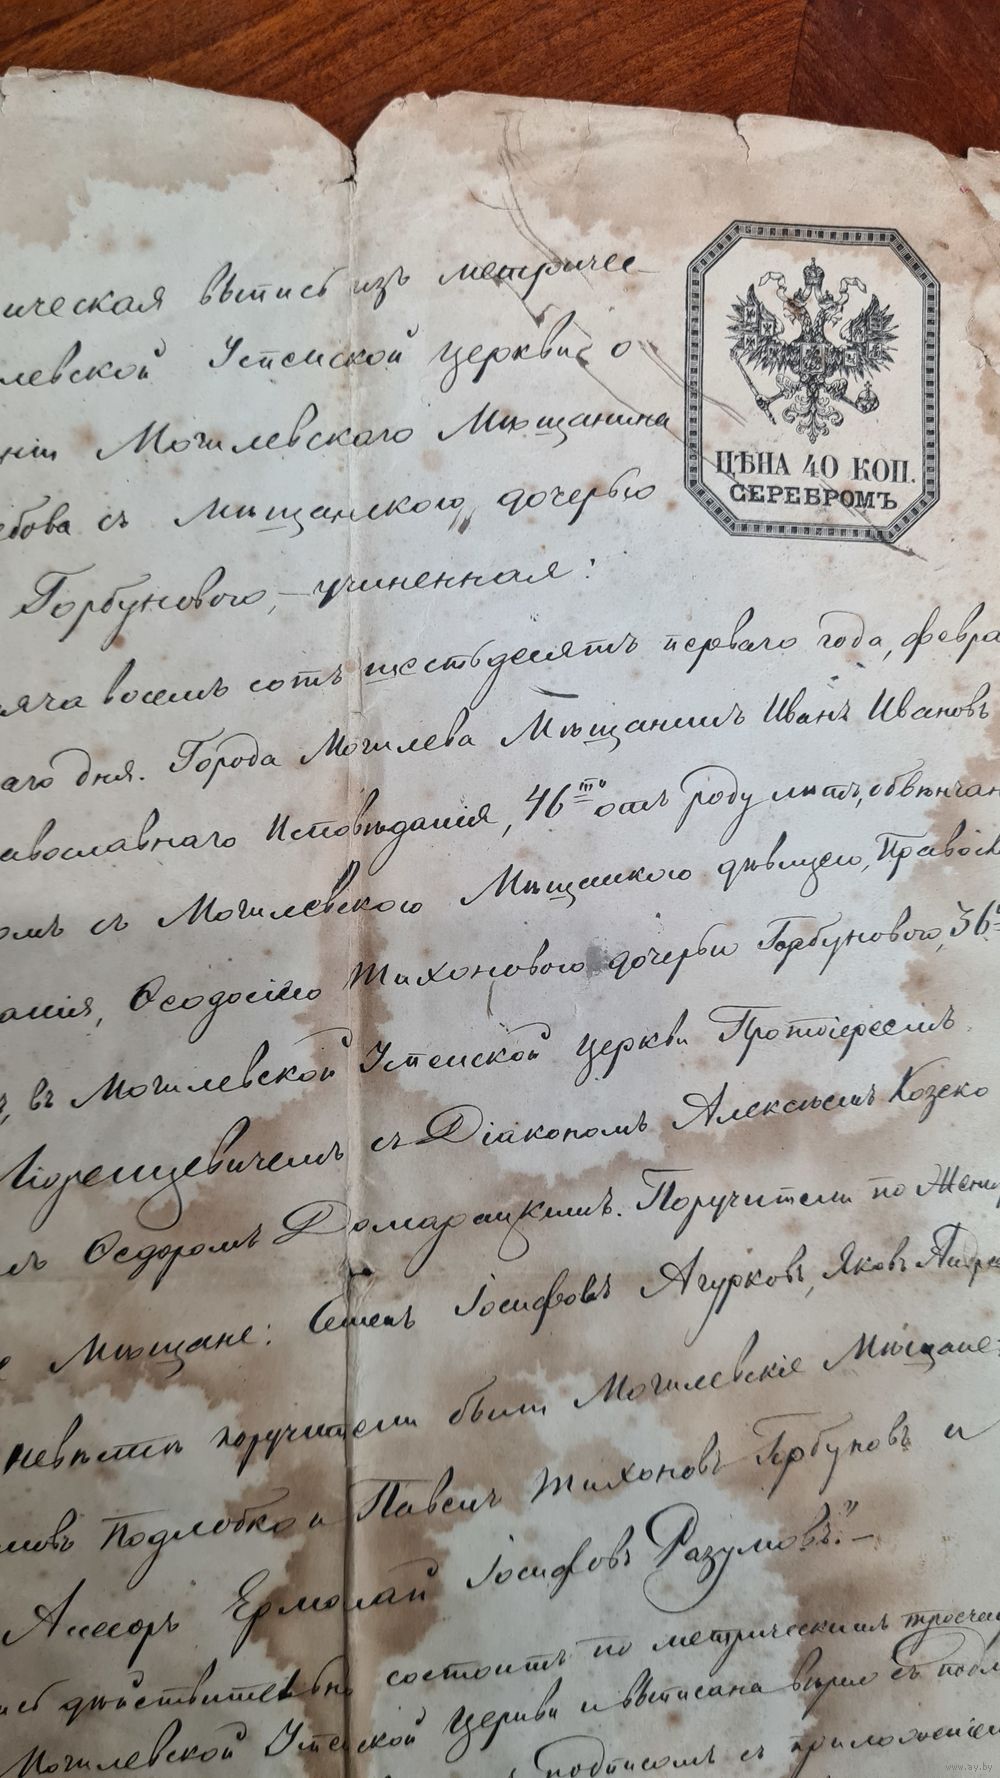 ическая выпись изъ метричес
левской Успенской церкви о
нiи Могилевскаго Мѣщанина
ебова съ Мѣщанскою дочерью
Горбуновою, — учиненная:
ЦѢНА 40 КОП.
СЕРЕБРОМЪ
яча восемь сотъ шестьдесятъ перваго года, февра
аго дня. Города Могилева Мѣщанинъ Иванъ Ивановъ
авославнаго Исповѣданiя, 46 отъ роду лѣтъ, обвѣнчан
омъ съ Могилевскою Мѣщанскою дѣвицею, Правосл
анiя, Ѳеодосiею Тихоновою дочерью Горбуновою, 36
въ Могилевской Успенской церкви Протоiереемъ
съ Дiакономъ Алексѣемъ Козско
мъ Ѳедоромъ Домарацкимъ. Поручители по Жених
е Мѣщане: Семенъ Iосифовъ Агурковъ, Яковъ Андре
невѣстѣ поручители были Могилевскiе Мѣщане:
мовъ Подлобко и Павелъ Тихоновъ Горбуновъ и
Асесоръ Ермолай Iосифовъ Разумовъ." —
сь дѣйствительно состоитъ по метрическимъ
Могилевской Успенской Церкви и выписана вѣрно съ подл
подписомъ съ приложенiем
www.ay.by